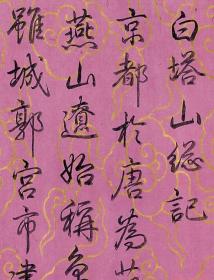 白塔山總記
京都於唐為
燕山遼始稱
雖城郭宮市建